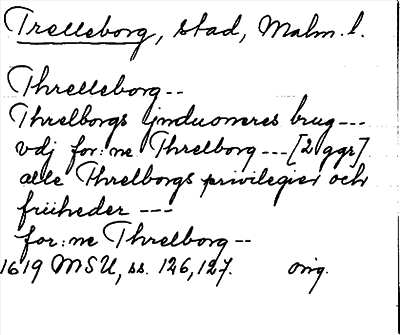 Trelleborg, stad, Malm. l.
Threlleborg --
Threlborgs jnduoneres brug ---
vdj for:ne Threlborg --- [2 ggr]
alle Threlborgs privilegier och
friiheder ---
for:ne Threlborg --
1619 MSU, ss. 126, 127. orig.